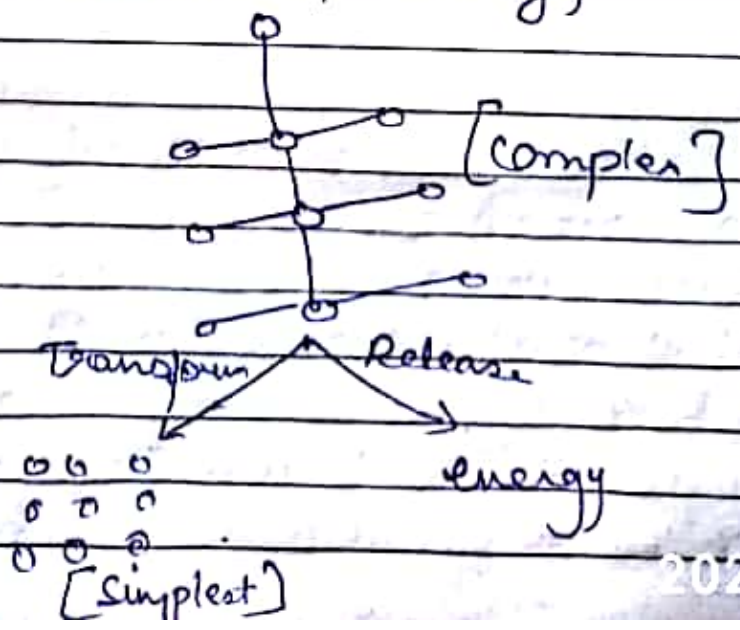 [Complex]
Transform Release
energy
[Simplest]
202